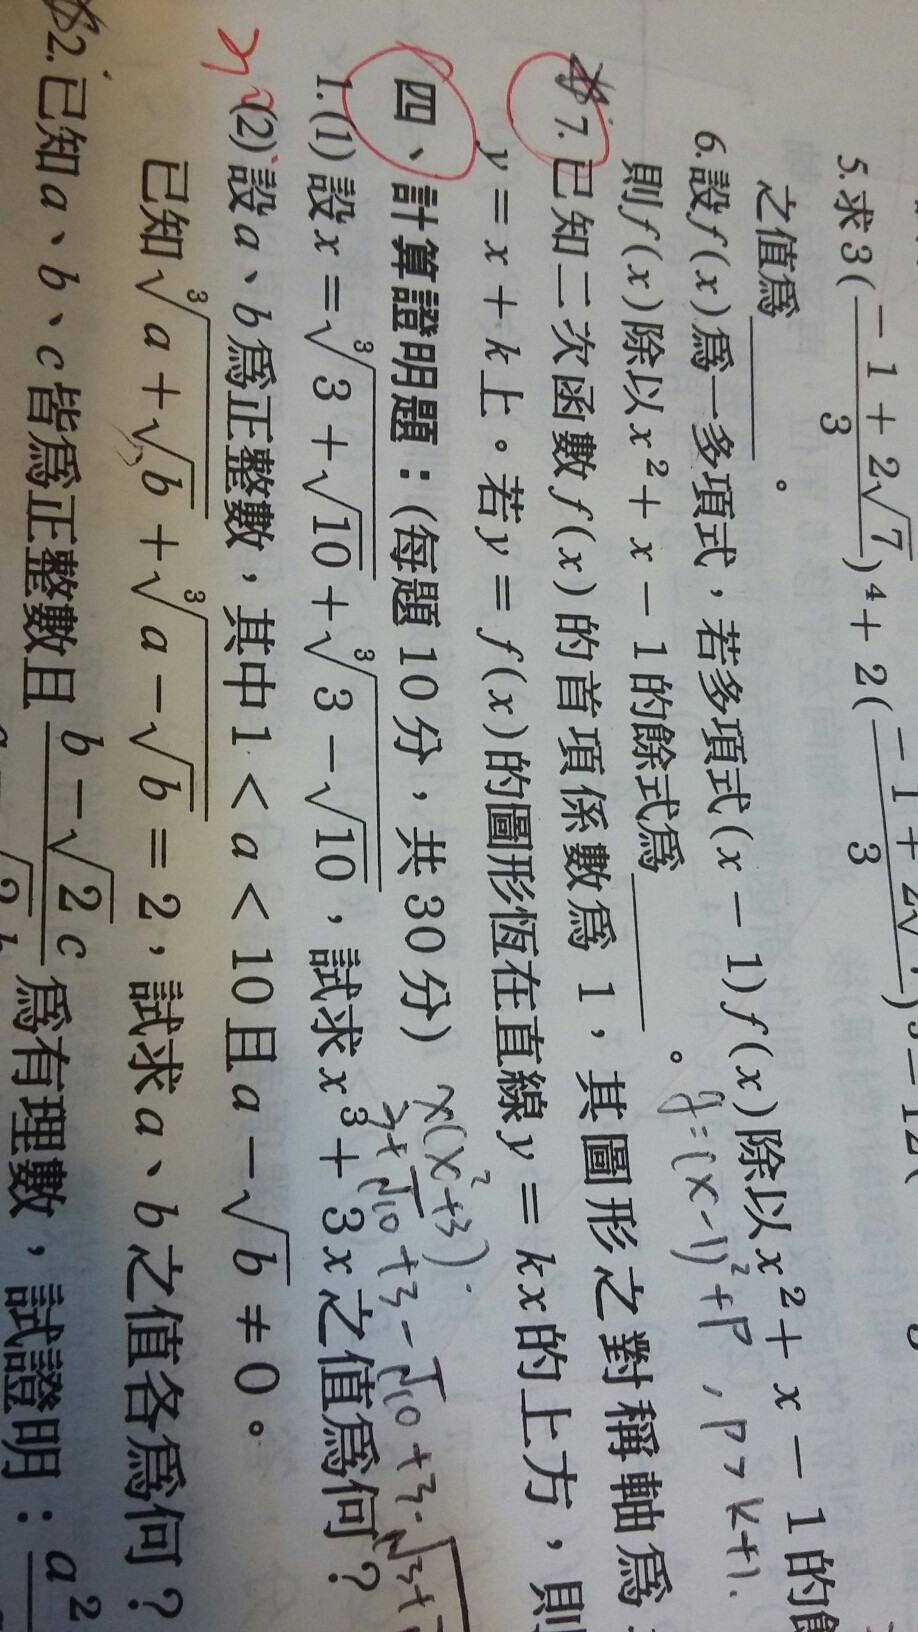 5.求3(\frac{-1+2\sqrt{7}}{3})^4+2(\frac{-1+2\sqrt{7}}{3})
之值為______。
6.設f(x)為一多項式，若多項式(x-1)f(x)除以x^2+x-1的餘
則f(x)除以x^2+x-1的餘式為______。
y=(x-1)^2+p, p>k+1.
7.已知二次函數f(x)的首項係數為1，其圖形之對稱軸為
y=x+k上。若y=f(x)的圖形恆在直線y=kx的上方，則
四、計算證明題：(每題10分，共30分)
x(x^2+3).
3+\sqrt{10}+3-\sqrt{10}+3·
1.(1)設x=\sqrt[3]{3+\sqrt{10}}+\sqrt[3]{3-\sqrt{10}}，試求x^3+3x之值為何？
(2)設a、b為正整數，其中1<a<10且a-\sqrt{b}≠0。
已知\sqrt[3]{a+\sqrt{b}}+\sqrt[3]{a-\sqrt{b}}=2，試求a、b之值各為何？
2.已知a、b、c皆為正整數且\frac{b-\sqrt{2}c}{\sqrt{2}b}為有理數，試證明：a^2